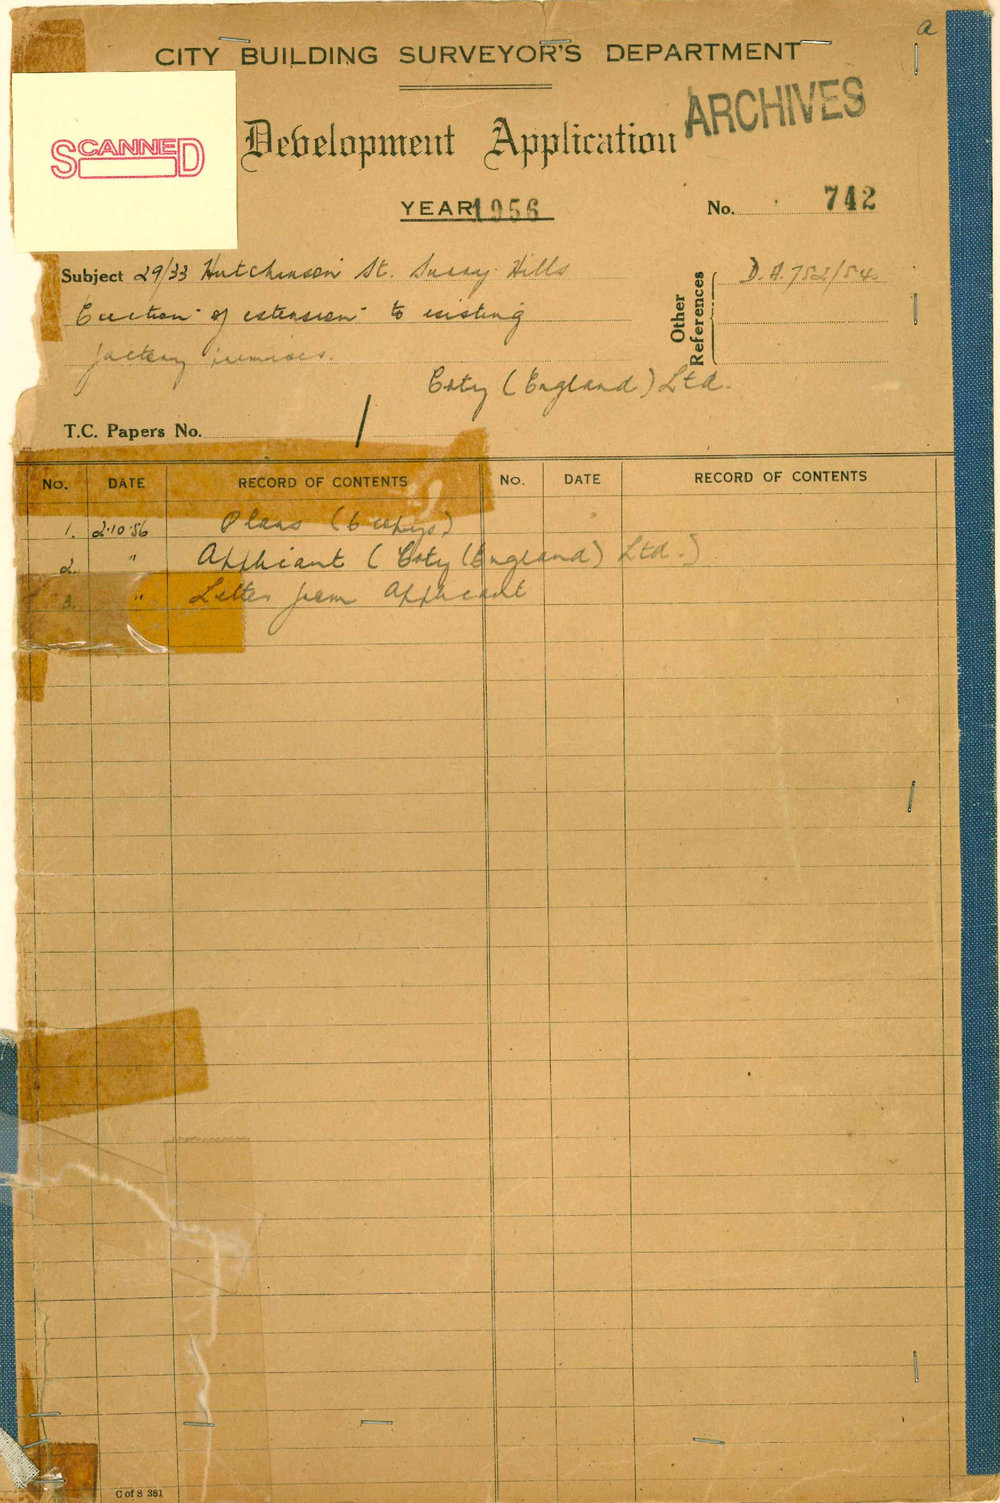 a
CITY BUILDING SURVEYOR'S DEPARTMENT
ARCHIVES
SCANNED
Development Application
YEAR 1956
No. 742
Subject 29/33 Hutchinson St. Surry Hills
Erection of extension to existing
factory premises.
Other References
D.A. 752/54.
Coty (England) Ltd.
T.C. Papers No. /
No. DATE RECORD OF CONTENTS No. DATE RECORD OF CONTENTS
1. 2.10.56 Plans (6 copys)
2. " Applicant (Coty (England) Ltd.)
3. " Letter from Applicant
C of S 381